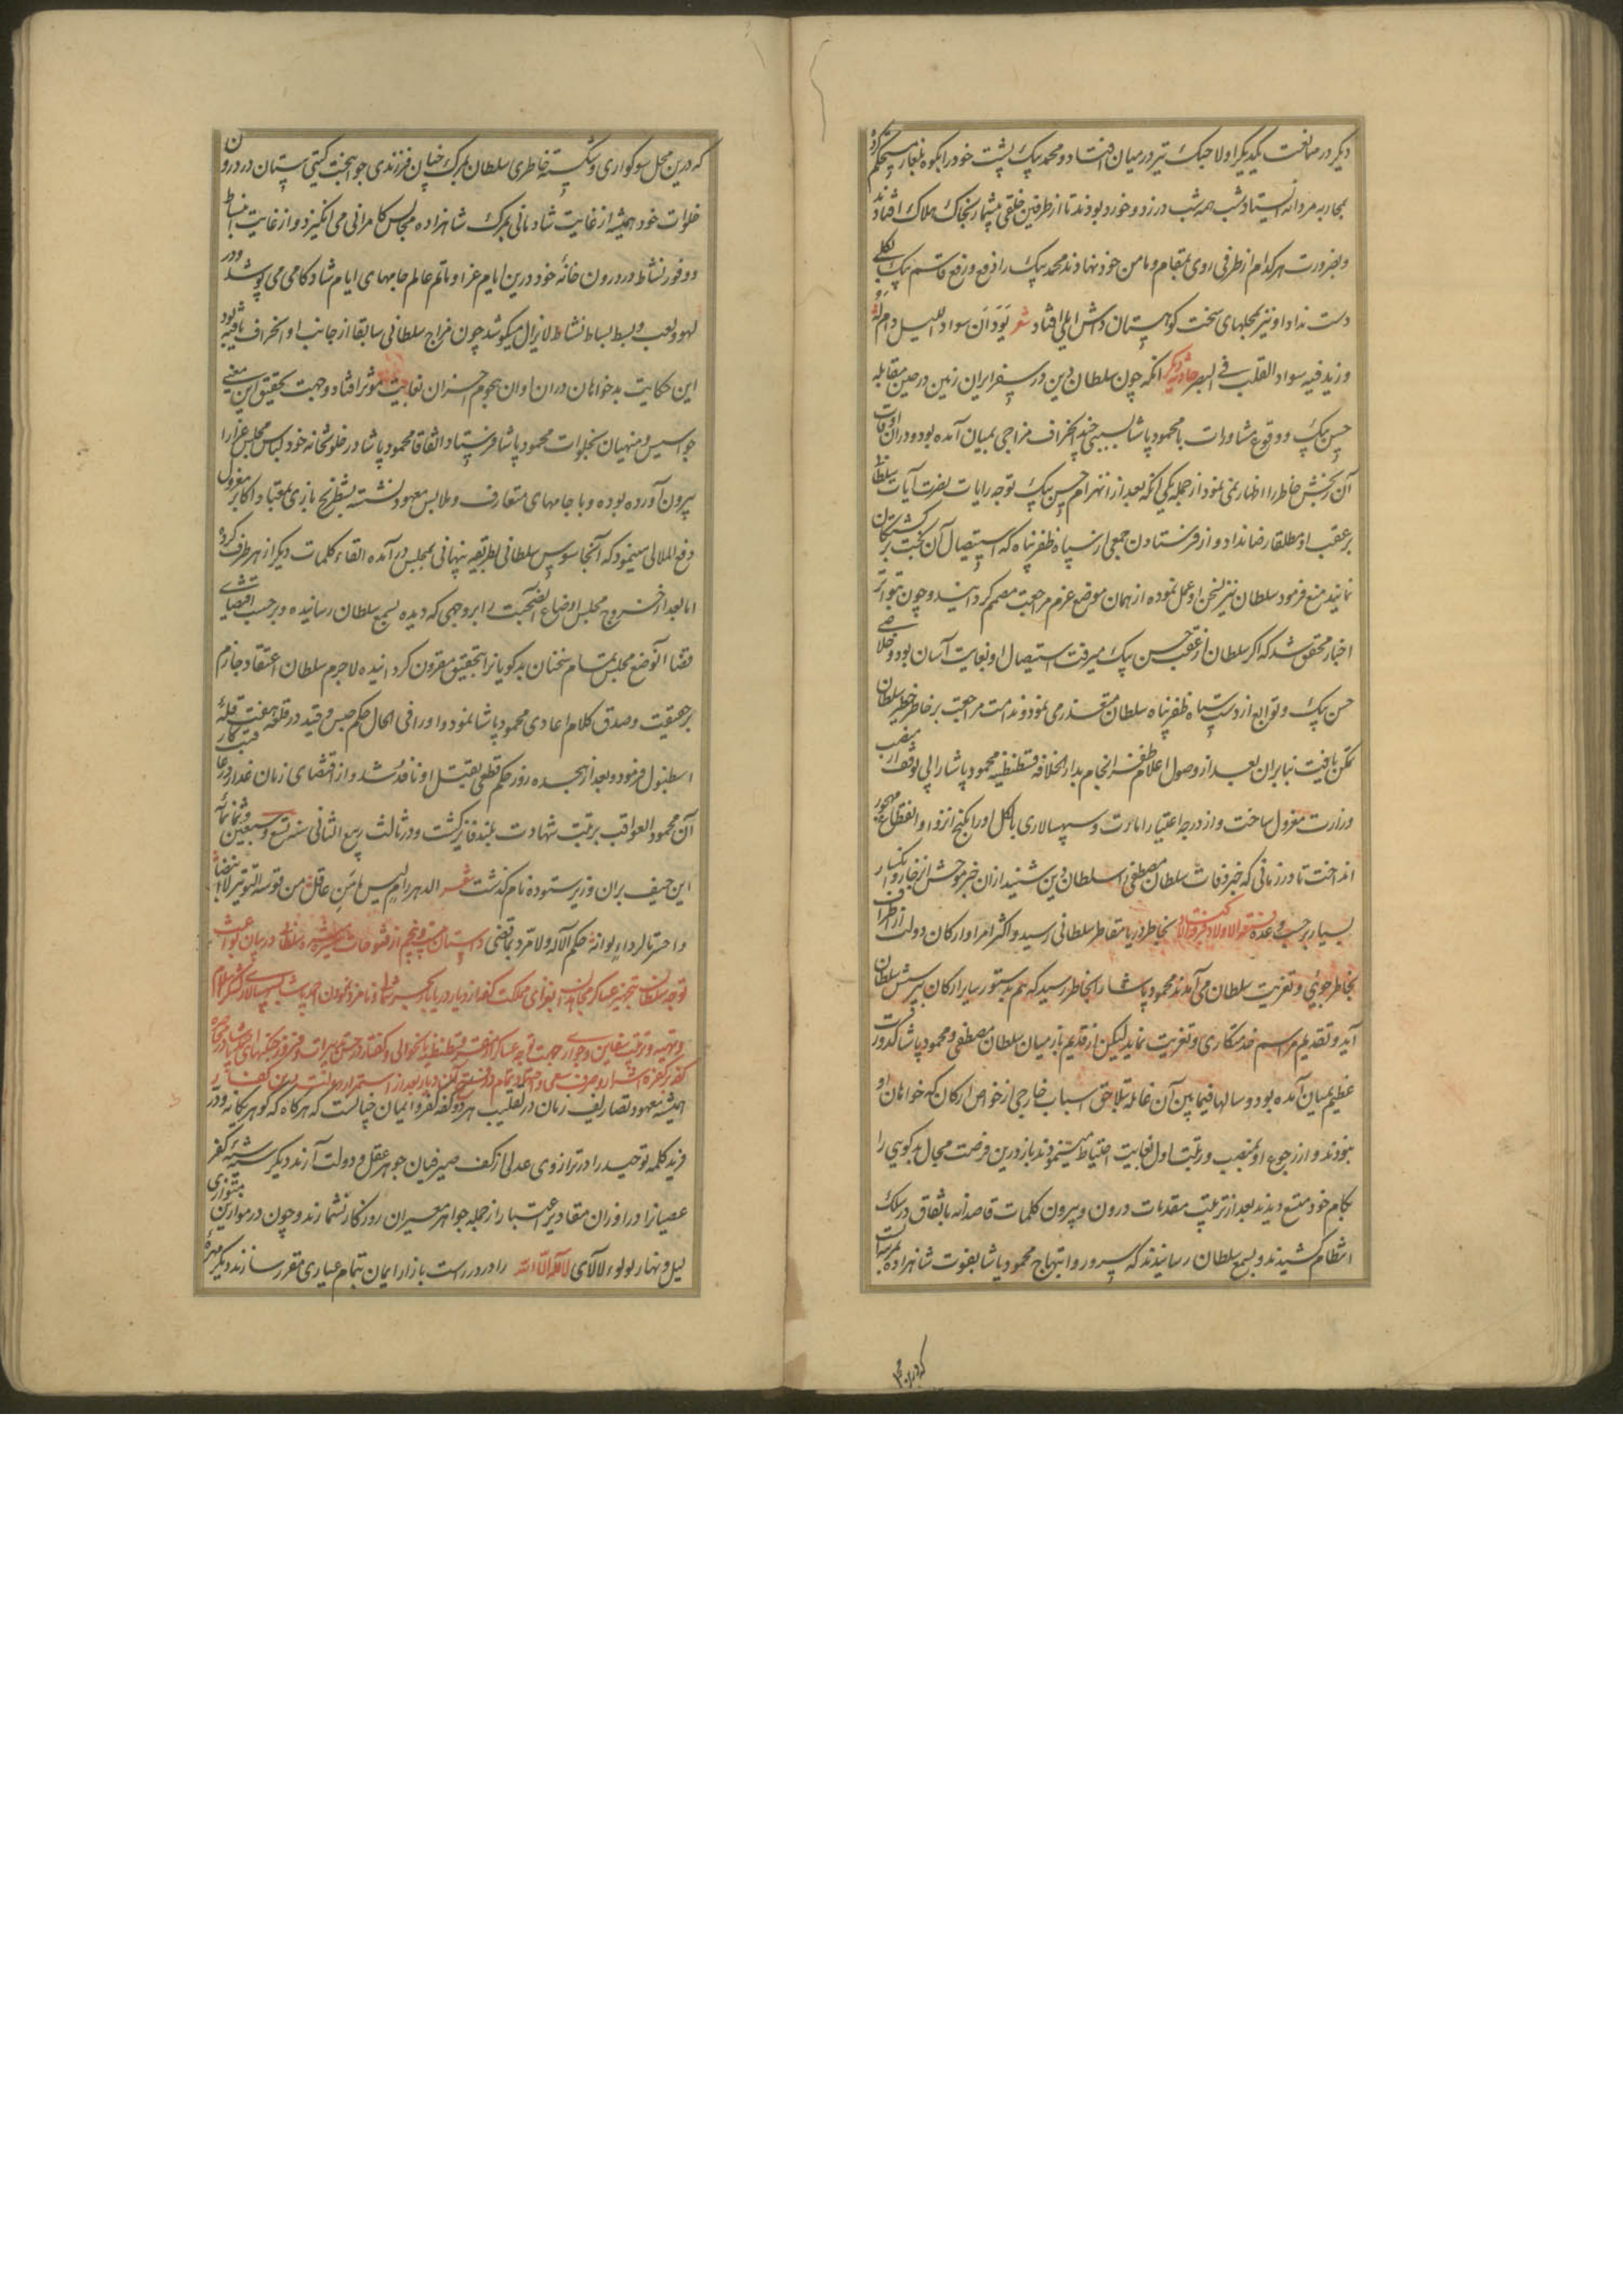 دیگر در ممانعت یکدیگر اولا جنگ تیر در میان افتاد و محمد بیک پشت خود را بکوه بلغار مستحکم کرد
بمحاربه مردانه ایستاد و شب همه شب در زد و خورد بودند تا از طرفین خلقی بیشمار بخاک هلاک افتادند
و بضرورت هر کدام از طرفی روی بمقام و مامن خود نهادند محمد بیک را دفع و رفع قاسم بیک بکلی
دست نداد او نیز بمحلهای سخت کوهستان داش ایلی افتاد شعر یود ان سواد اللیل دام له
و زید فیه سواد القلب فی البصر حادثه دیگر انکه چون سلطان دین در سفر ایران زمین در حین مقابله
حسن بیک و وقوع مشاورات با محمود پاشا بسببی چند انحراف مزاجی بمیان آمده بود و دران اوقات
آن رنجش خاطر را اظهار نمی نمود از جمله یکی آنکه بعد از انهزام حسن بیک توجه رایات نصرت آیات سلطان
بر عقب او مطلقا رضا نداد و از فرستادن جمعی از سپاه ظفر پناه که استیصال آن بخت برگشتگان
نمایند منع فرمود سلطان نیز بسخن او عمل نموده از همان موضع عزم مراجعت مصمم گردانید و چون بتواتر
اخبار محقق شد که اگر سلطان از عقب حسن بیک میرفت استیصال او بغایت آسان بود و خلاصی
حسن بیک و توابع از دست سپاه ظفر پناه سلطان متعذر می نمود و ندامت مراجعت بر خاطر خطیر سلطان
تمکن یافت بنابران بعد از وصول اعلام ظفر انجام بدار الخلافه قسطنطنیه محمود پاشا را بی توقف از منصب
وزارت معزول ساخت و از درجه اعتبار امارت و سپهسالاری بالکل او را بکنج انزوا و انقطاع مهجور
انداخت تا در زمانی که خبر وفات سلطان مصطفی را سلطان دین شنید ازان خبر موحش انزجار و انکسار
بسیار بر حسب وعده فتنة الاولاد بخاطر دریا مقاطر سلطانی رسید و اکثر امرا و ارکان دولت از اطراف
بخاطر جویی و تعزیت سلطان می آمدند محمود پاشا را بخاطر رسید که هم بدستور سایر ارکان بپرسش سلطان
آید و تقدیم مراسم خدمتکاری و تعزیت نماید لیکن از قدیم باز میان سلطان مصطفی و محمود پاشا کدورت
عظیم بمیان آمده بود و سالها فیما بین آن غائله بتلاحق اسباب خارجی از خواص ارکان که خواهان او
نبودند و از رجوع او بمنصب و رتبت اول بغایت احتیاط می نمودند باز درین فرصت مجال بدگویی را
بکام خود متمتع دیدند بعد از ترتیب مقدمات درون و بیرون کلمات قاصدانه باتفاق در سلک
انتظام کشیدند و بسمع سلطان رسانیدند که سرور و ابتهاج محمود پاشا بفوت شاهزاده بمرتبه ایست
که درین محل
که درین محل سوکواری و شکسته خاطری سلطان بمرگ چنان فرزندی جوانبخت گیتی ستان در درون
خلوات خود همیشه از غایت شادمانی بمرگ شاهزاده مجالس کامرانی می انگیزد و از غایت انبساط
و وفور نشاط در درون خانه خود درین ایام عزا و ماتم عالم جامهای ایام شادکامی می پوشد و در
لهو و لعب و بسط بساط نشاط لایزال میکوشد چون مزاج سلطانی سابقا از جانب او انحراف یافته بود
این حکایت بدخواهان دران اوان هجوم احزان بغایت موثر افتاد و جهت تحقیق این معنی
جواسیس و منهیان بخلوات محمود پاشا فرستاد و اتفاقا محمود پاشا در خلوتخانه خود لباس مجلس عزا را
بیرون آورده بوده و با جامهای متعارف و ملابس معهود نشسته بشطرنج بازی بمعتاد اکابر معزول
دفع الملالی مینمود که آنجا سوس سلطانی بطریقه پنهانی بمجلس در آمده القاء کلمات دیگر از هر طرف کرد
اما بعد از خروج مجلس اوضاع آن صحبت را بر وجهی که دیده بسمع سلطان رسانیده و بر حسب اقتضای
قضا آن وضع مجلس تمام سخنان بدگویانرا بتحقیق مقرون گردانیده لاجرم سلطان اعتقاد جازم
بر حقیقت و صدق کلام اعادی محمود پاشا نمود و او را فی الحال حکم حبس و قید در قلعه هفت قله
اسطنبول فرمود و بعد از هجده روز حکم قطعی بقتل او نافذ شد و از اقتضای زمان غدار
آن محمود العواقب برتبت شهادت بلند فایز گشت و در ثالث ربیع الثانی سنه تسع و سبعین و ثمانمائه
این حیف بران وزیر ستوده نام گذشت شعر
همیشه معهود تصاریف زمان در تقلیب هر دو کفه کفر و ایمان چنانست که هرگاه که گوهر یگانه و در
فرید کلمه توحید را در ترازوی عدلی از کف صیرفیان جوهر عقل و دولت آرند دیگر شبه کفر
عصیانرا در اوزان مقادیر اعتبار از جمله جواهر معیران روزگار نشمارند و چون در موازین
لیل و نهار لولوء لالای لا اله الا الله را در رسته بازار ایمان بتمام عیاری مقرر سازند دیگر مهره